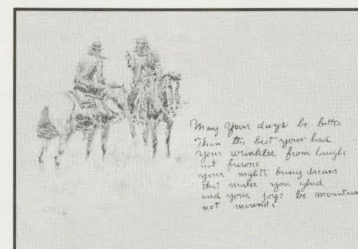 May your days be better
Than the best your had
your wrinkles from laughs
not frowns
your nights bring dreams
that makes you glad
and your joys be mountains
not mounds